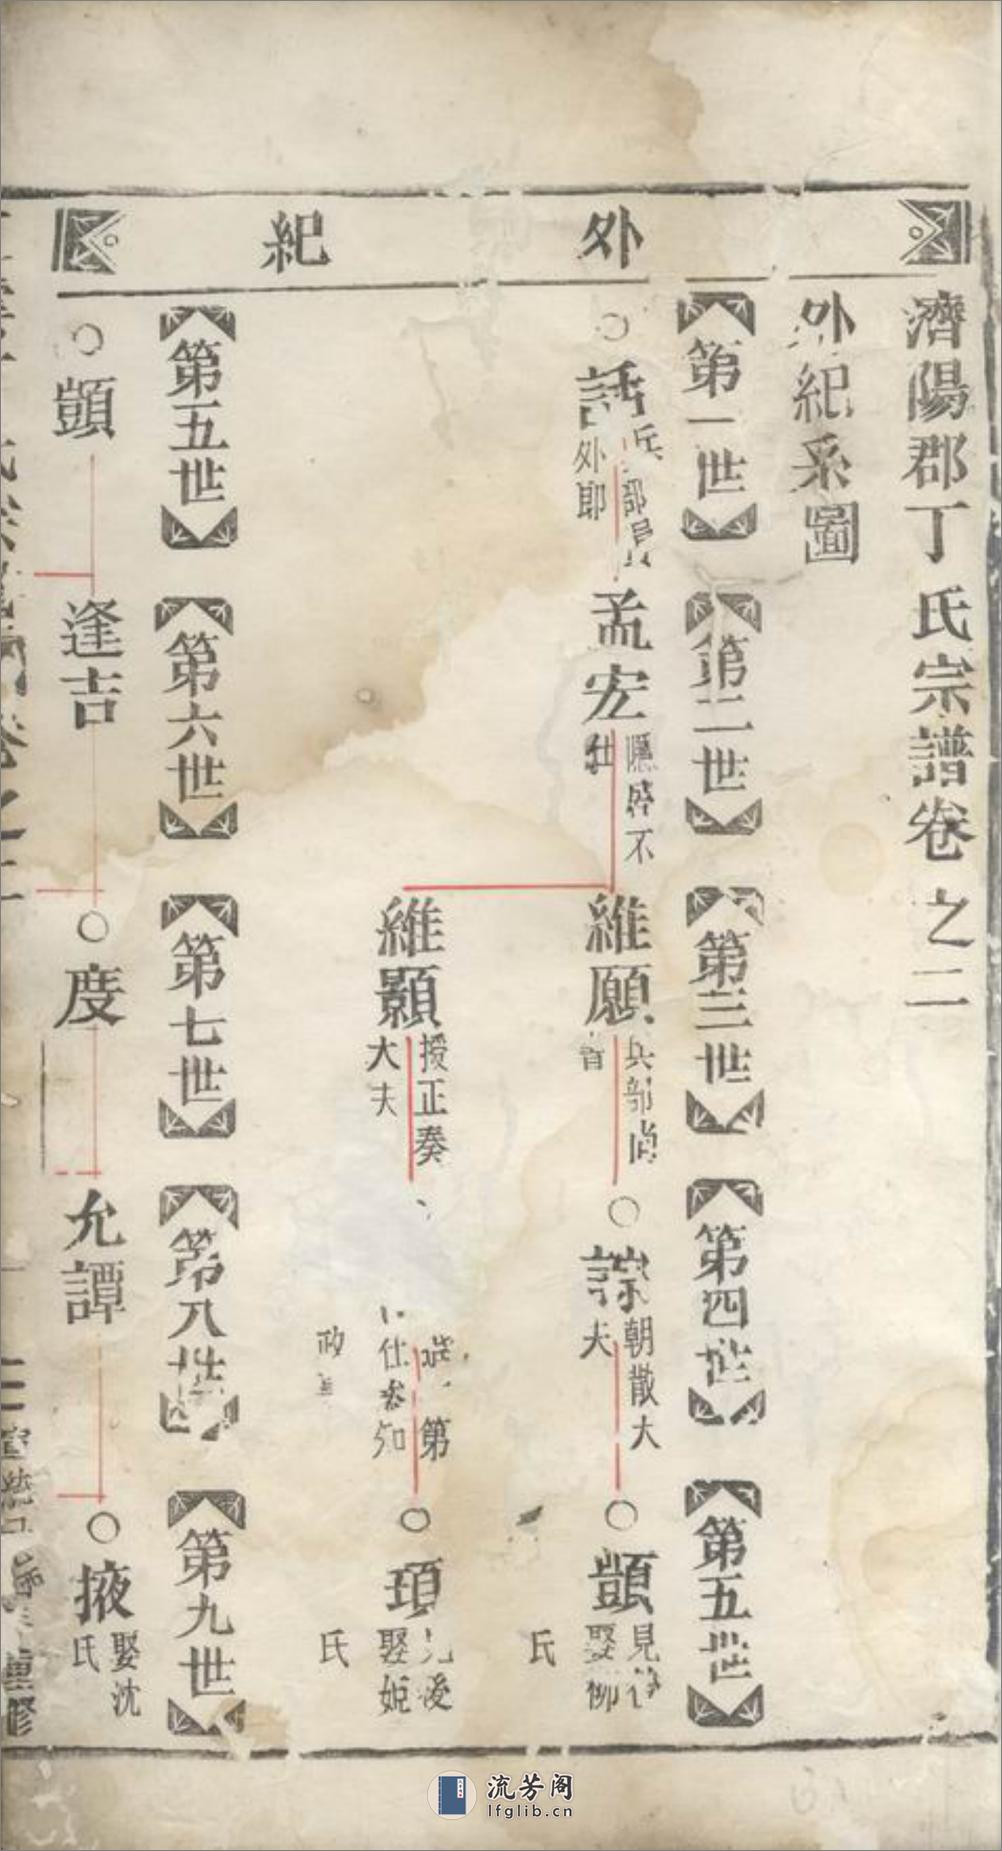 濟陽郡丁氏宗譜卷之二
外紀
外紀系圖
第一世
第二世
第三世
第四世
第五世
話
兵部員
外郎
孟宏
隱啓不
仕
維願
兵部尚
書
諒
朝散大
夫
顗
見後
娶柳
氏
維顯
授正奏
大夫
第
仕參知
政
頊
見後
娶姬
氏
第五世
第六世
第七世
第八世
第九世
顗
逢吉
度
允譚
掖
娶沈
氏
重修
流芳阁
lfglib.cn